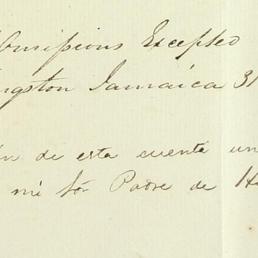 Omissions Excepted
ngston Jamaica 31
n de esta cuenta un
mi Sôr Padre de H